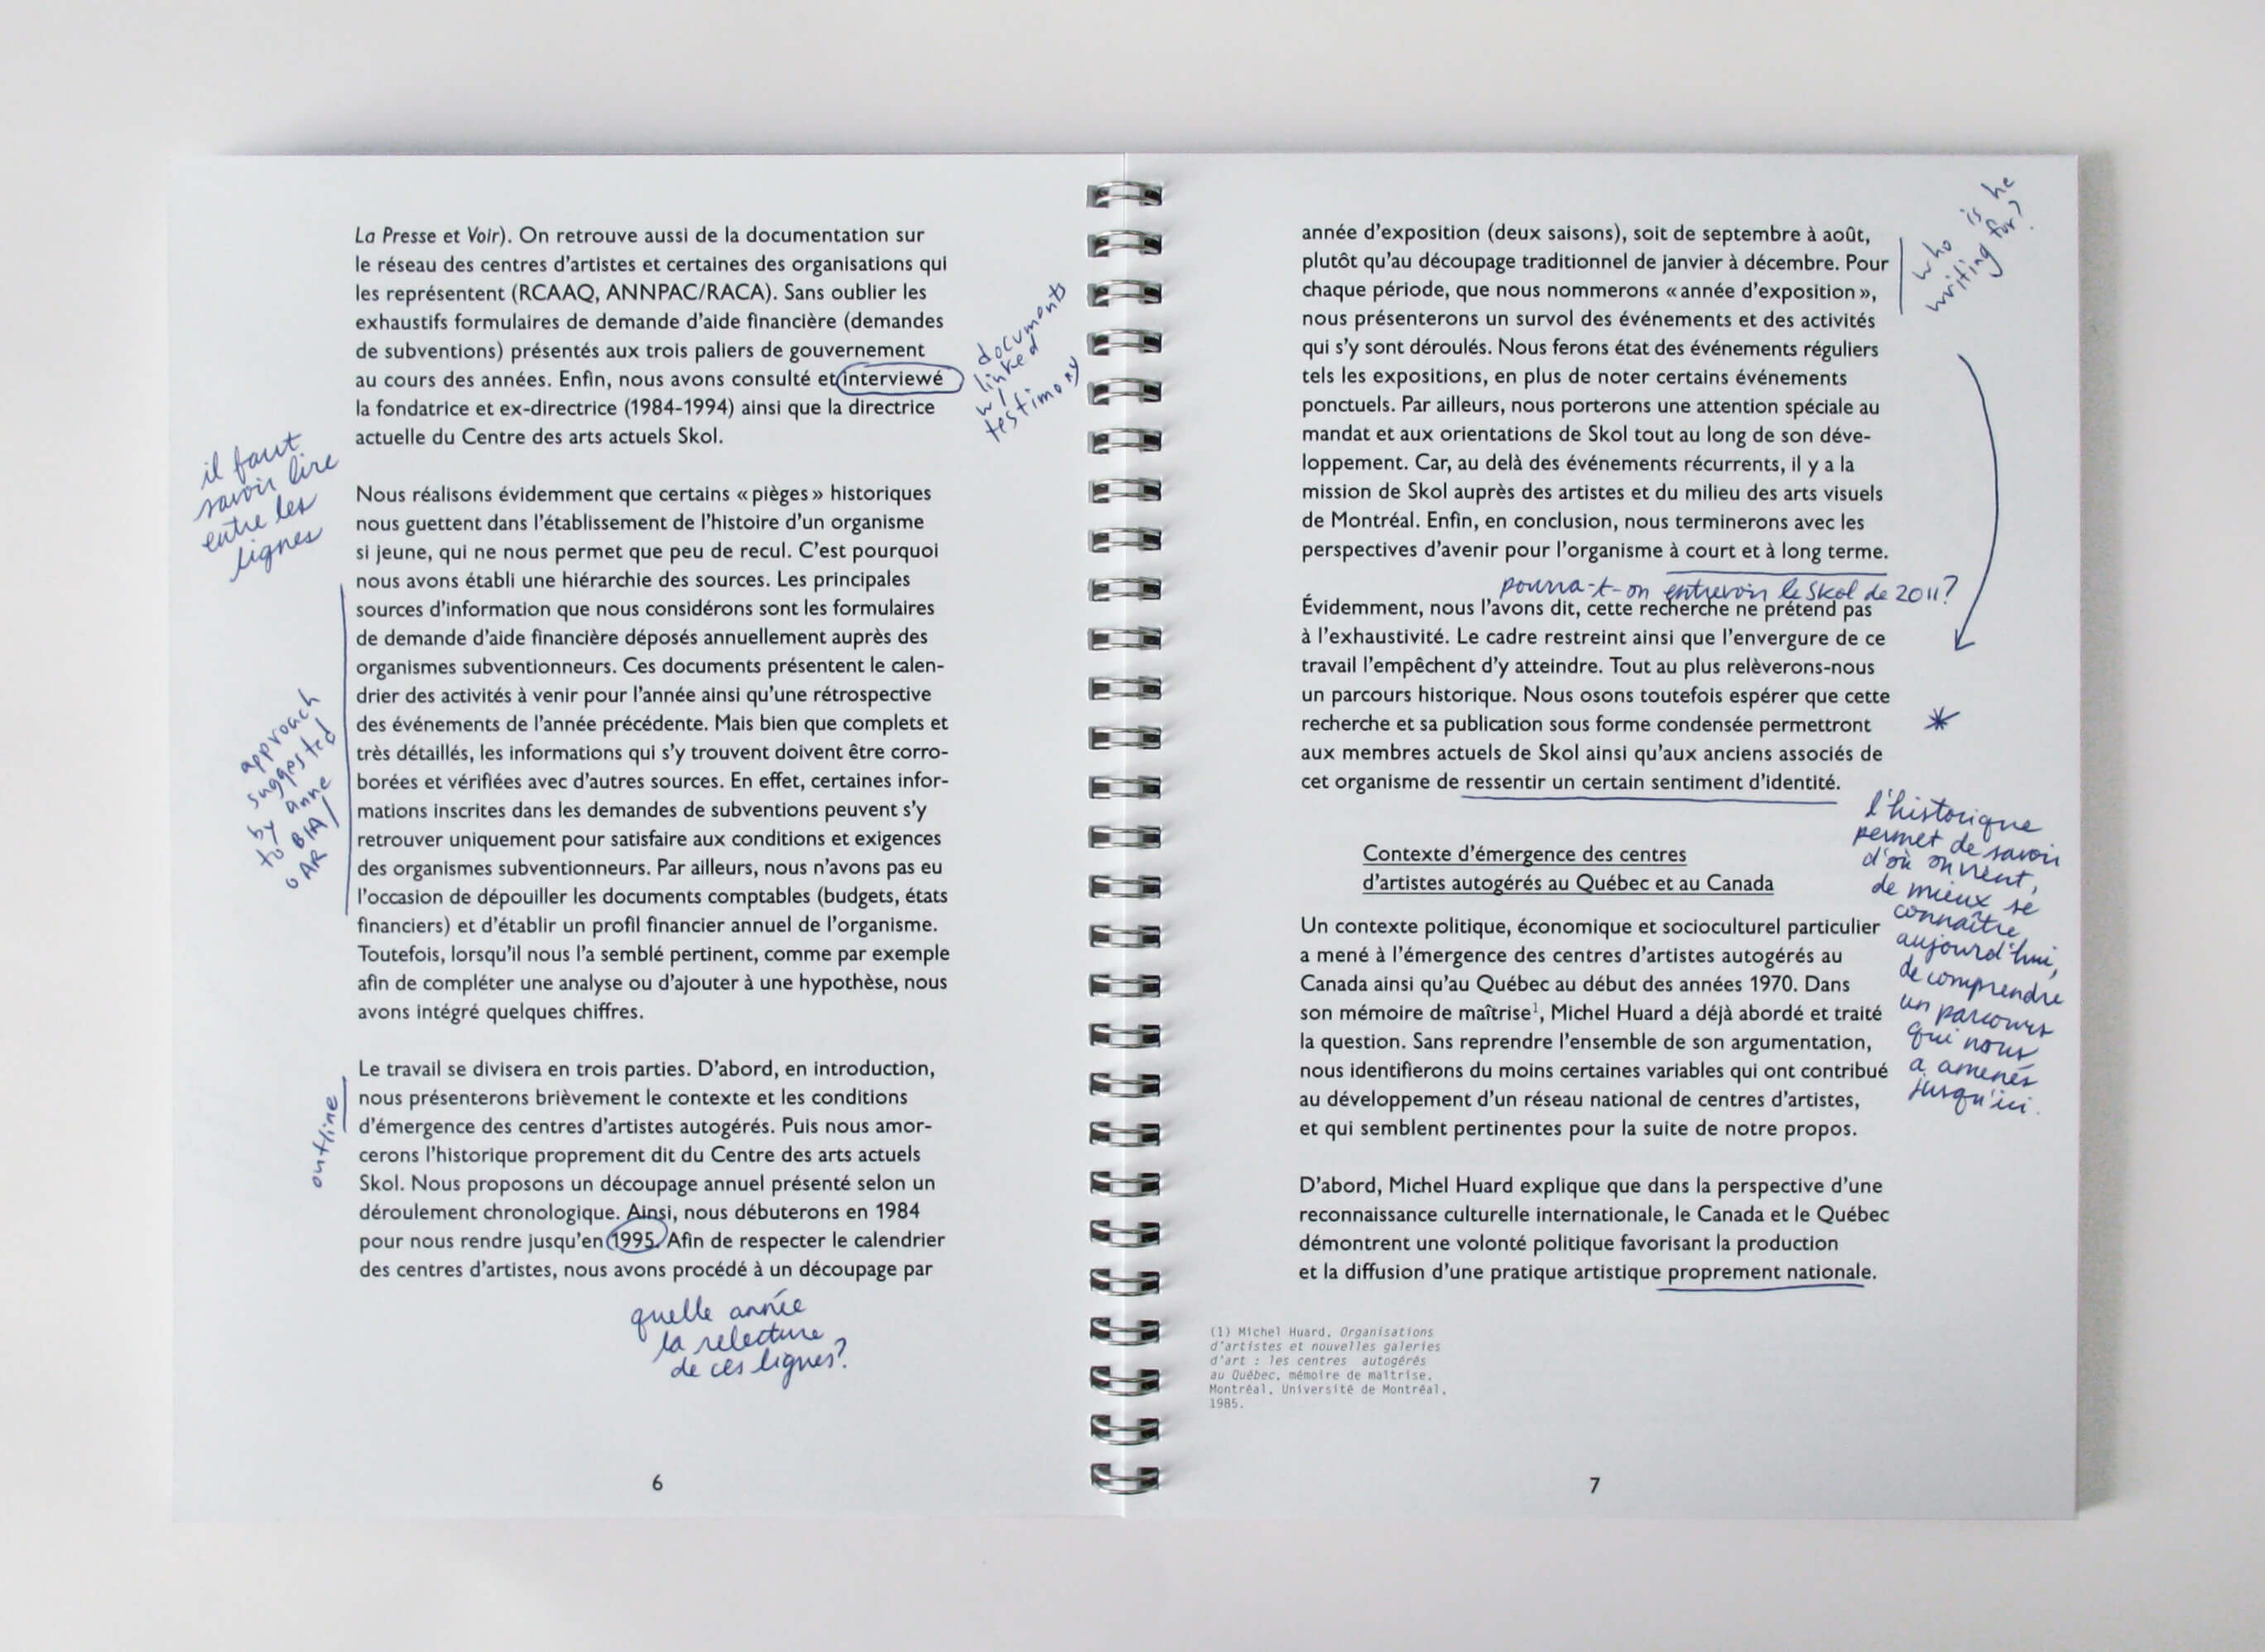 La Presse et Voir). On retrouve aussi de la documentation sur
le réseau des centres d'artistes et certaines des organisations qui
les représentent (RCAAQ, ANNPAC/RACA). Sans oublier les
exhaustifs formulaires de demande d'aide financière (demandes
de subventions) présentés aux trois paliers de gouvernement
au cours des années. Enfin, nous avons consulté et interviewé
la fondatrice et ex-directrice (1984-1994) ainsi que la directrice
actuelle du Centre des arts actuels Skol.
documents
linked
w/
testimony
il faut
savoir lire
entre les
lignes
Nous réalisons évidemment que certains « pièges » historiques
nous guettent dans l'établissement de l'histoire d'un organisme
si jeune, qui ne nous permet que peu de recul. C'est pourquoi
nous avons établi une hiérarchie des sources. Les principales
sources d'information que nous considérons sont les formulaires
de demande d'aide financière déposés annuellement auprès des
organismes subventionneurs. Ces documents présentent le calen-
drier des activités à venir pour l'année ainsi qu'une rétrospective
des événements de l'année précédente. Mais bien que complets et
très détaillés, les informations qui s'y trouvent doivent être corro-
borées et vérifiées avec d'autres sources. En effet, certaines infor-
mations inscrites dans les demandes de subventions peuvent s'y
retrouver uniquement pour satisfaire aux conditions et exigences
des organismes subventionneurs. Par ailleurs, nous n'avons pas eu
l'occasion de dépouiller les documents comptables (budgets, états
financiers) et d'établir un profil financier annuel de l'organisme.
Toutefois, lorsqu'il nous l'a semblé pertinent, comme par exemple
afin de compléter une analyse ou d'ajouter à une hypothèse, nous
avons intégré quelques chiffres.
approach
suggested
by anne
to BIA/
AR
Le travail se divisera en trois parties. D'abord, en introduction,
nous présenterons brièvement le contexte et les conditions
d'émergence des centres d'artistes autogérés. Puis nous amor-
cerons l'historique proprement dit du Centre des arts actuels
Skol. Nous proposons un découpage annuel présenté selon un
déroulement chronologique. Ainsi, nous débuterons en 1984
pour nous rendre jusqu'en 1995. Afin de respecter le calendrier
des centres d'artistes, nous avons procédé à un découpage par
outline
quelle année
la relecture
de ces lignes?
6
année d'exposition (deux saisons), soit de septembre à août,
plutôt qu'au découpage traditionnel de janvier à décembre. Pour
chaque période, que nous nommerons « année d'exposition »,
nous présenterons un survol des événements et des activités
qui s'y sont déroulés. Nous ferons état des événements réguliers
tels les expositions, en plus de noter certains événements
ponctuels. Par ailleurs, nous porterons une attention spéciale au
mandat et aux orientations de Skol tout au long de son déve-
loppement. Car, au delà des événements récurrents, il y a la
mission de Skol auprès des artistes et du milieu des arts visuels
de Montréal. Enfin, en conclusion, nous terminerons avec les
perspectives d'avenir pour l'organisme à court et à long terme.
who is he
writing for?
pourra-t-on entrevoir le Skol de 2011?
Évidemment, nous l'avons dit, cette recherche ne prétend pas
à l'exhaustivité. Le cadre restreint ainsi que l'envergure de ce
travail l'empêchent d'y atteindre. Tout au plus relèverons-nous
un parcours historique. Nous osons toutefois espérer que cette
recherche et sa publication sous forme condensée permettront
aux membres actuels de Skol ainsi qu'aux anciens associés de
cet organisme de ressentir un certain sentiment d'identité.
*
l'historique
permet de savoir
d'où on vient,
de mieux se
connaître
aujourd'hui,
de comprendre
un parcours
qui nous
a amenés
jusqu'ici.
Contexte d'émergence des centres
d'artistes autogérés au Québec et au Canada
Un contexte politique, économique et socioculturel particulier
a mené à l'émergence des centres d'artistes autogérés au
Canada ainsi qu'au Québec au début des années 1970. Dans
son mémoire de maîtrise1, Michel Huard a déjà abordé et traité
la question. Sans reprendre l'ensemble de son argumentation,
nous identifierons du moins certaines variables qui ont contribué
au développement d'un réseau national de centres d'artistes,
et qui semblent pertinentes pour la suite de notre propos.
D'abord, Michel Huard explique que dans la perspective d'une
reconnaissance culturelle internationale, le Canada et le Québec
démontrent une volonté politique favorisant la production
et la diffusion d'une pratique artistique proprement nationale.
(1) Michel Huard, Organisations
d'artistes et nouvelles galeries
d'art : les centres autogérés
au Québec, mémoire de maîtrise,
Montréal, Université de Montréal,
1985.
7